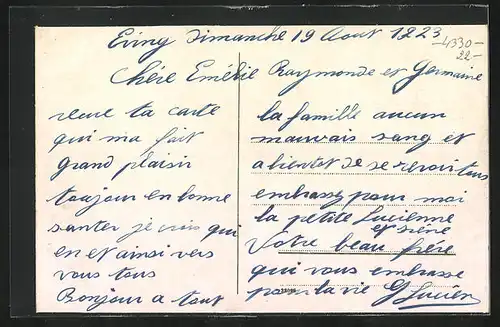 Dimanche 19 Aout 1923
4330-
22-
Chère Emélie Raymonde et Germaine
recue ta carte
qui ma fait
grand plaisir
toujour en bonne
santer je crois qui
en et ainsi vers
vous tous
Bonjour a tout
la famille aucun
mauvais sang et
a bientot de se revoir tous
embrassz pour moi
la petite Lucienne
et
Votre beau frére
qui vous embrasse
pour la vie G Lucien